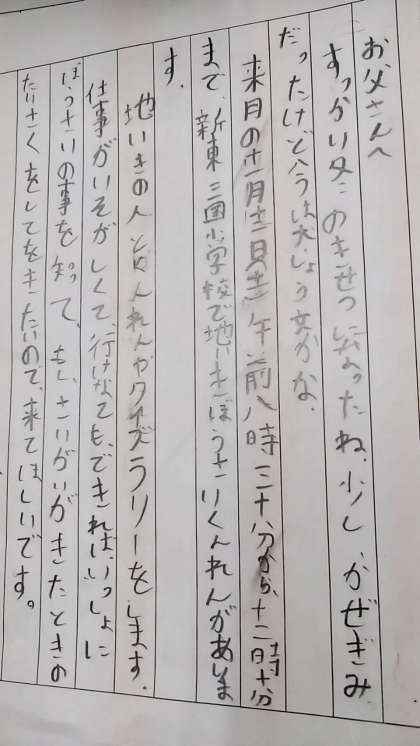 お父さんへ
すっかり冬のきせつになったね。少しかぜぎみ
だったけど今は大じょう夫かな。
来月の十一月十二日(土)午前八時三十分から、十二時十分
まで、新東三国小学校で地いきぼうさいくんれんがありま
す。
地いきの人とくんれんやクイズラリーをします。
仕事がいそがしくて、行けなくても、できればいっしょに
ぼうさいの事を知って、もし、さいがいがきたときの
たいさくをしてをきたいので、来てほしいです。